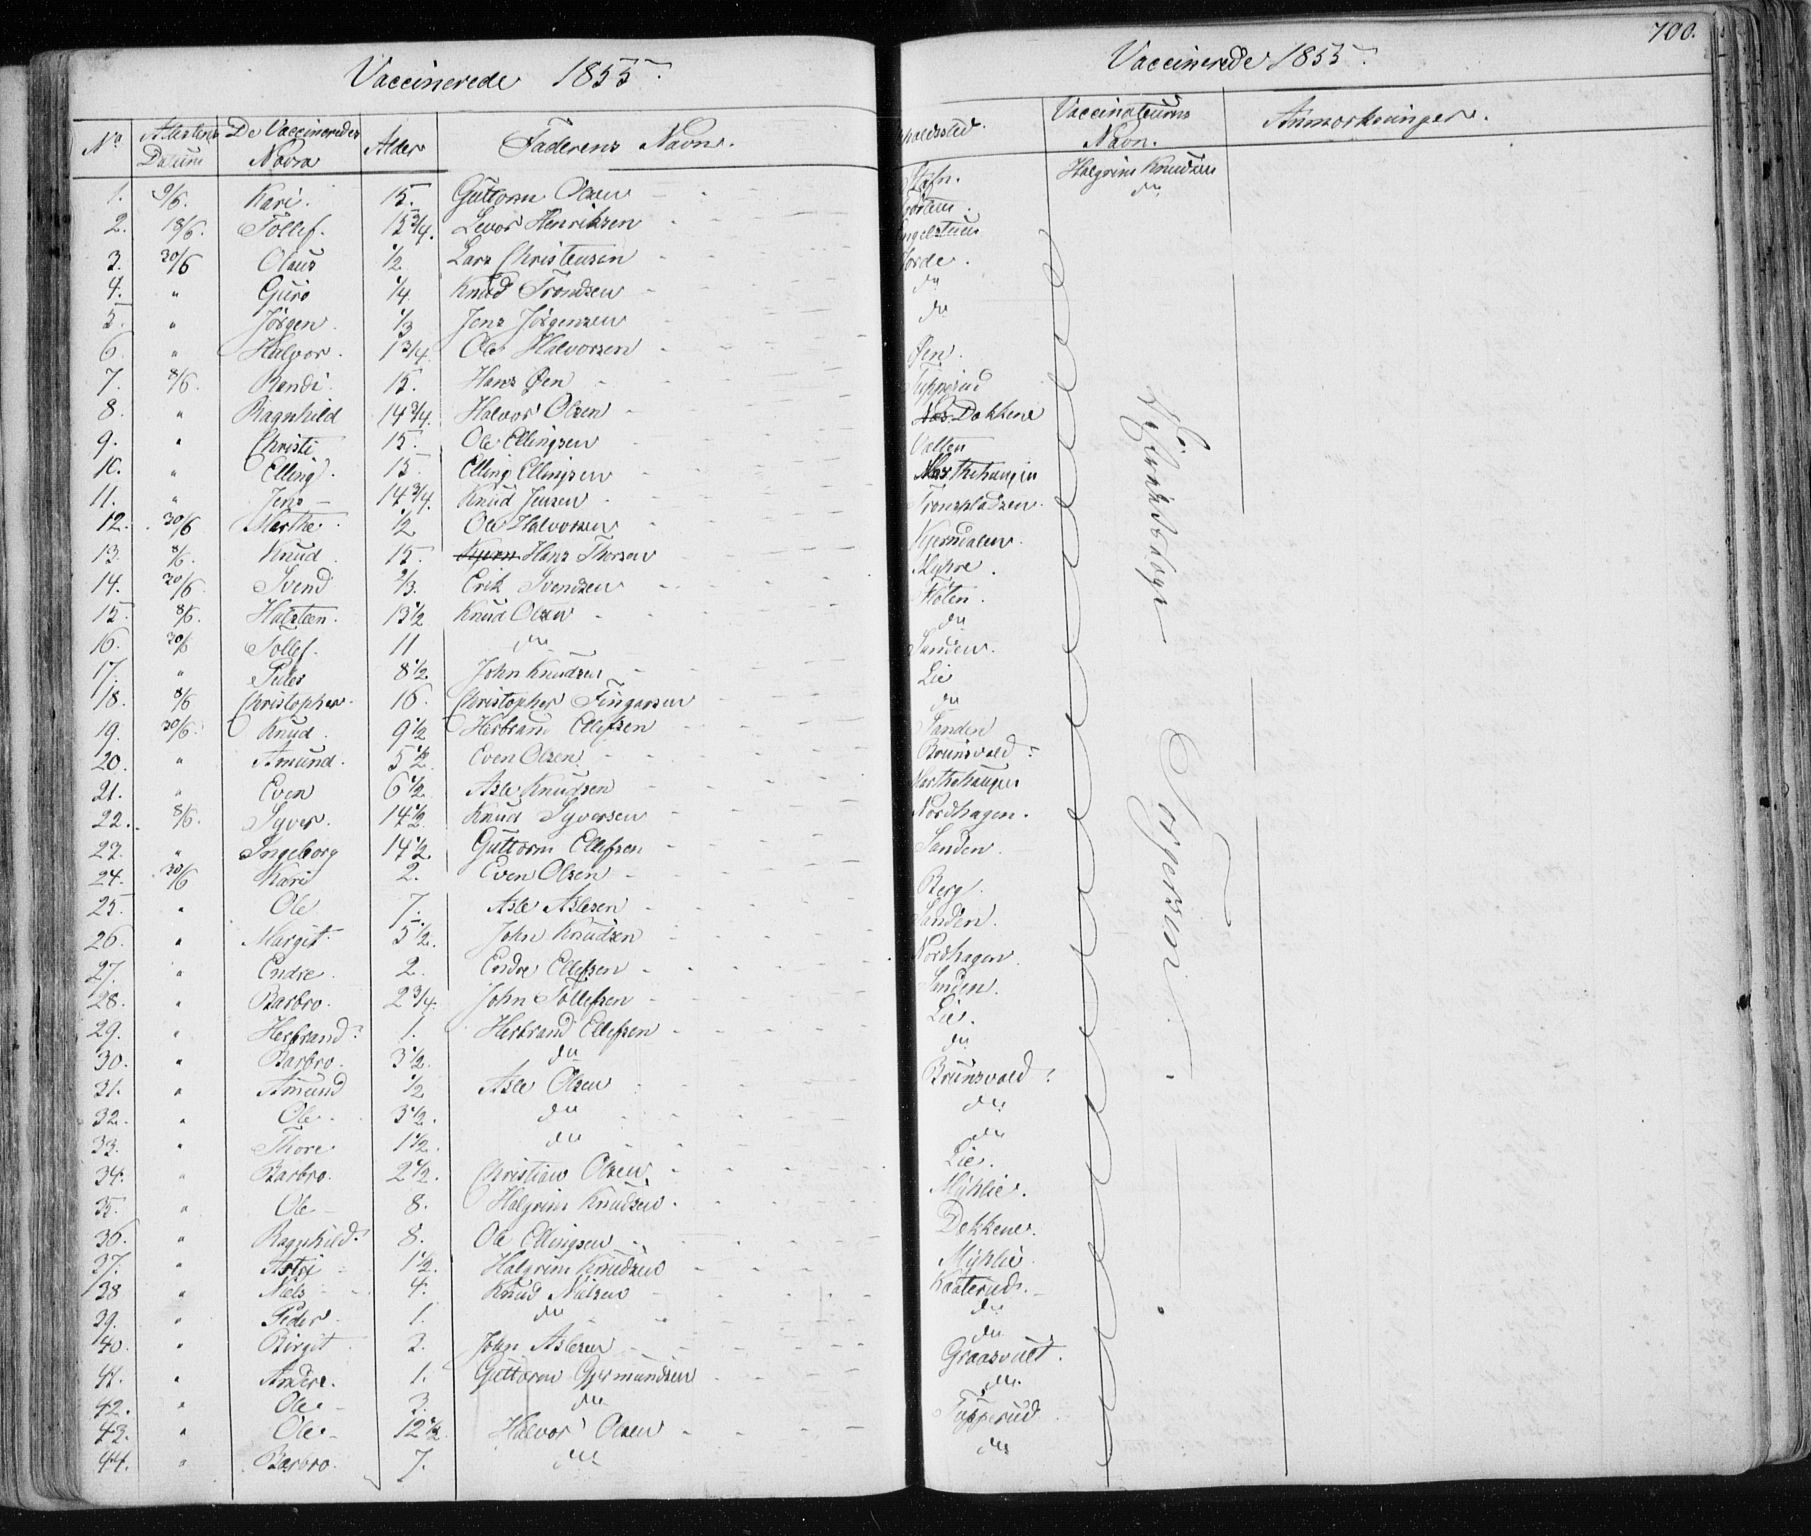 Vaccinerede 1855.
No Attestens Datum De Vaccineredes Navn Alder Faderens Navn.
1. 9/6. Kari. 15. Guttorm Olsen
2. 18/6. Tollef. 15 3/4. Levor Henriksen
3. 30/6 Olaus 1/2 Lars Christensen
4. " Guro 1/4 Knud Trondsen
5. " Jörgen. 1/3 Jens Jörgensen
6. " Halvor. 1 3/4. Ole Halvorsen
7. 8/6. Bendi. 15. Hans Øen
8. " Ragnhild 14 3/4. Halvor Olsen
9. " Christi 15. Ole Ellingsen
10. " Elling. 15. Elling Ellingsen
11. " Jens 14 3/4. Knud Jensen
12. 30/6 Marthe. 1/2 Ole Halvorsen
13. 8/6. Knud. 15. Hans Thorsen
14. 30/6. Svend 2/3. Erik Svendsen
15. 8/6. Halsteen. 13 1/2 Knud Olsen
16. 30/6 Tollef. 11 do
17. " Peder 8 1/2 John Knudsen
18. 8/6 Christopher. 16. Christopher Fingarsen
19. 30/6. Knud. 9 1/2 Herbrand Ellefsen
20. " Amund. 5 1/2. Even Olsen
21. " Even 6 1/2 Asle Knudsen
22. 8/6. Syver. 14 1/2. Knud Syversen
23. " Ingeborg 14 1/2. Guttorm Ellefsen
24. 30/6 Kari 2. Even Olsen
25. " Ole 7. Asle Aslesen
26. " Margit 5 1/2. John Knudsen
27. " Endre. 2. Endre Ellefsen
28. " Barbro. 2 3/4. John Tollefsen
29. " Herbrand? 1. Herbrand Ellefsen
30. " Barbro. 3 1/2. do
31. " Amund 1/2 Asle Olsen
32. " Ole. 3 1/2. do
33. " Thore 1 1/2. do
34. " Barbro. 2 1/2. Christian Olsen
35. " Ole 8. Halgrim Knudsen.
36. " Ragnhild? 8. Ole Ellingsen
37. " Astri 1 1/2. Halgrim Knudsen
38 " Niels 4. Knud Nielsen
39. " Peder. 1. do
40. " Birgit 2. John Aslesen
41. " Andre. 1. Guttorm Gjermundsen
42. " Ole 3. do
43. " Ole 12 1/2 Halvor Olsen
44. " Barbro. 7. do
Vaccinerede 1855.
700.
Vaccinateurns Navn. Anmærkninger.
Halgrim Knudsen
do
do
do
Øen.
Tupperud
Dækkene
Vollen
Marthehaugen
Tronspladsen.
Myhre.
Floten.
do
Sanden.
Lie
do
Sanden
Brunsvold?
Marthehaugen
Nordhagen.
Sanden.
Berg.
Sanden.
Nordhagen.
Sanden.
Lie.
do
Brunsvold?
do
do
Lie.
Myhlie.
Dekkene.
Myhlie.
Kaaterud.
do
do
Graasvalt.
do.
Tupperud
do